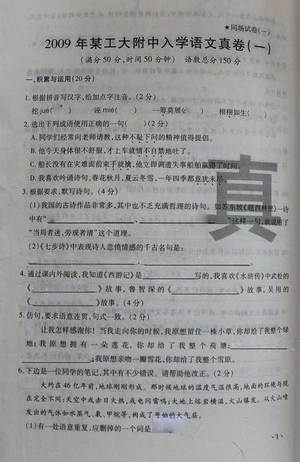 ★同场试卷(一)
2009 年某工大附中入学语文真卷(一)
(满分 50 分,时间 50 分钟) 语数总分 150 分
一、积累与运用(20 分)
1. 根据拼音写汉字,给加点字注音。(2 分)
诗jù( ) mó( )砖 一毫莫展( ) 栩栩如生( )
2. 选出下列成语使用正确的一句( )(2 分)
A. 同学们经常向老师请教,这种不耻下问的精神值得提倡。
B. 他今天身体很不舒服,才上车就大吐而特吐了。
C. 船长没有在灾难面前束手就擒,他立即调遣失事船辆赢得了时间。
D. 我喜欢吟诵诗句,春花秋月,夏云冬雪,一年四季都意犹未尽。
3. 根据要求,默写诗句。(4 分)
(1)我国的古诗作品非常多,其中也不乏充满哲理的诗句。如苏东坡《题西林壁》一诗
中就有“ ”这样一句,就说明了
“当局者迷,旁观者清”这个道理。
(2)《七步诗》中表现诗人悲愤情感的千古名句是:
4. 通过课内外阅读,我知道《西游记》是 写的,我喜欢《水浒传》中武松的
《 》故事,鲁智深的《 》故事,吴用的
《 》故事。(4 分)
5. 仿句,要求语意连贯,句式一致。(2 分)
让我怎样感谢你!当我走向你的时候,我原想留住一株小草,你却给了我整个绿
地;我原想拥有一朵莲花,你却给了我整个荷塘;
;我原想亲吻一瓣雪花,你却给了我整个雪原。
6. 下边是一位同学的笔记,其中有不少错误。请帮助他改正。(2 分)
大约在 46 亿年前,地球刚刚形成。那时候地球的温度气温很高,地面的环境与现
在完全不同:天空中或赤日炎炎,或电闪雷鸣;大地上熔岩横溢,火山爆发。从火山喷
发出的气体如水蒸气、氨、甲烷等,构成了考始的大气层。
(1)有一处语意重复,应删掉的一个词是
真
· 1 ·